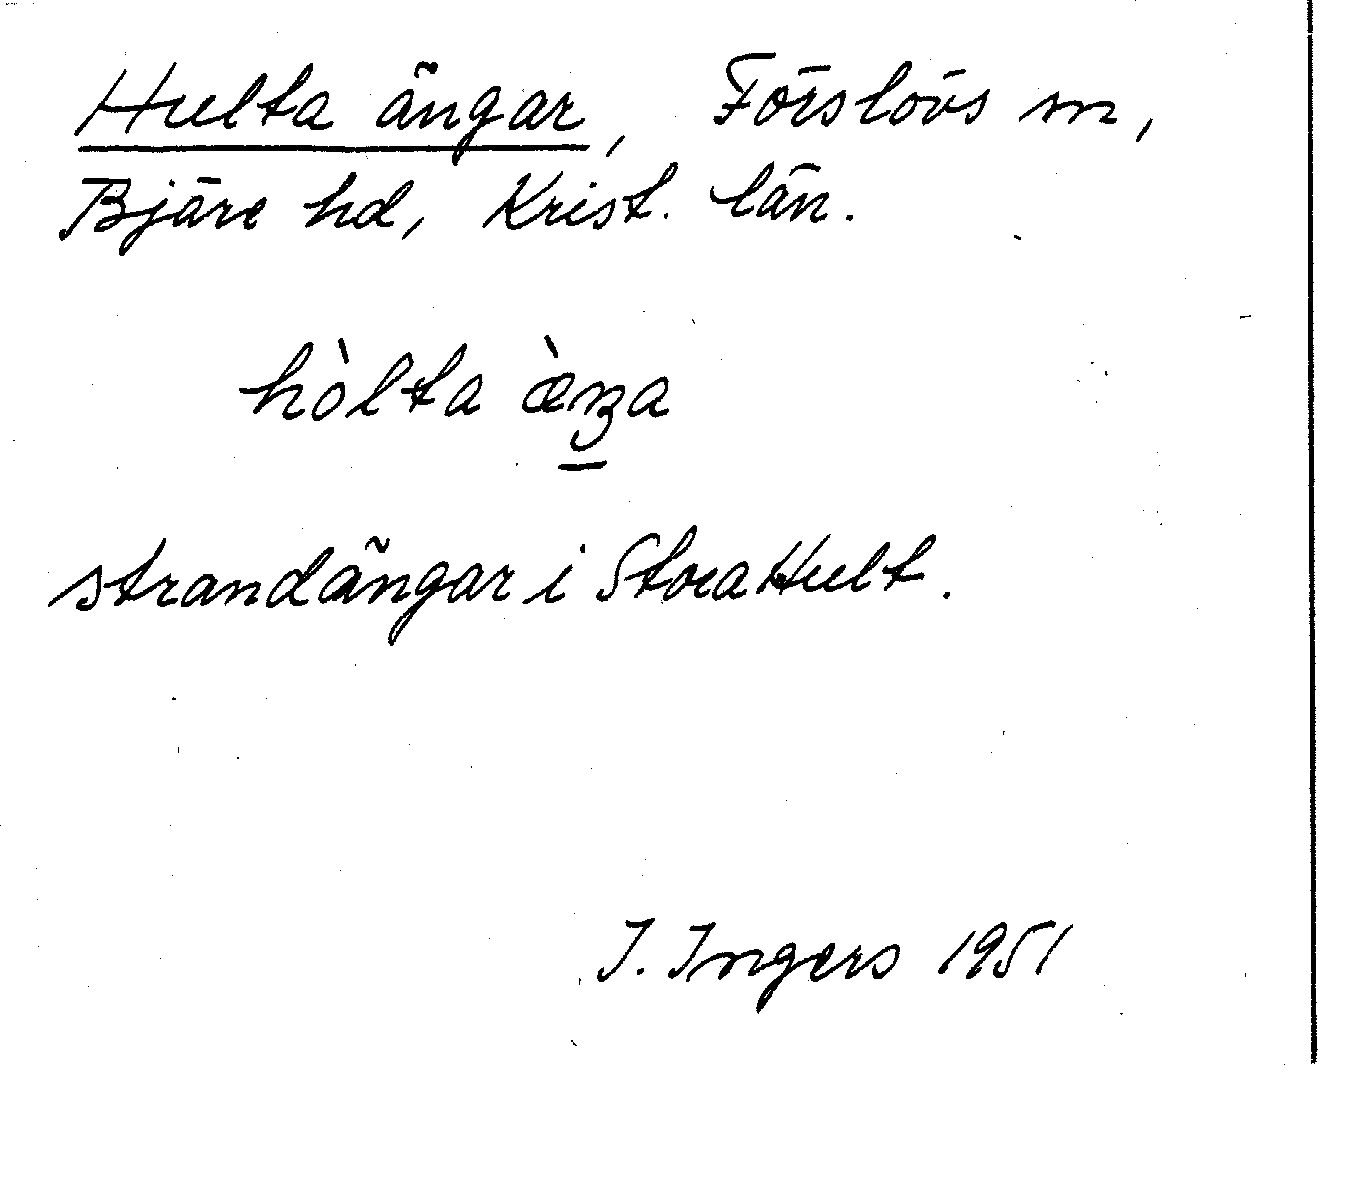 Hulta ängar, Förslövs sn,
Bjäre hd, Krist. län.
hòlta æ̀ŋa
strandängar i Stora Hult.
I. Ingers 1951